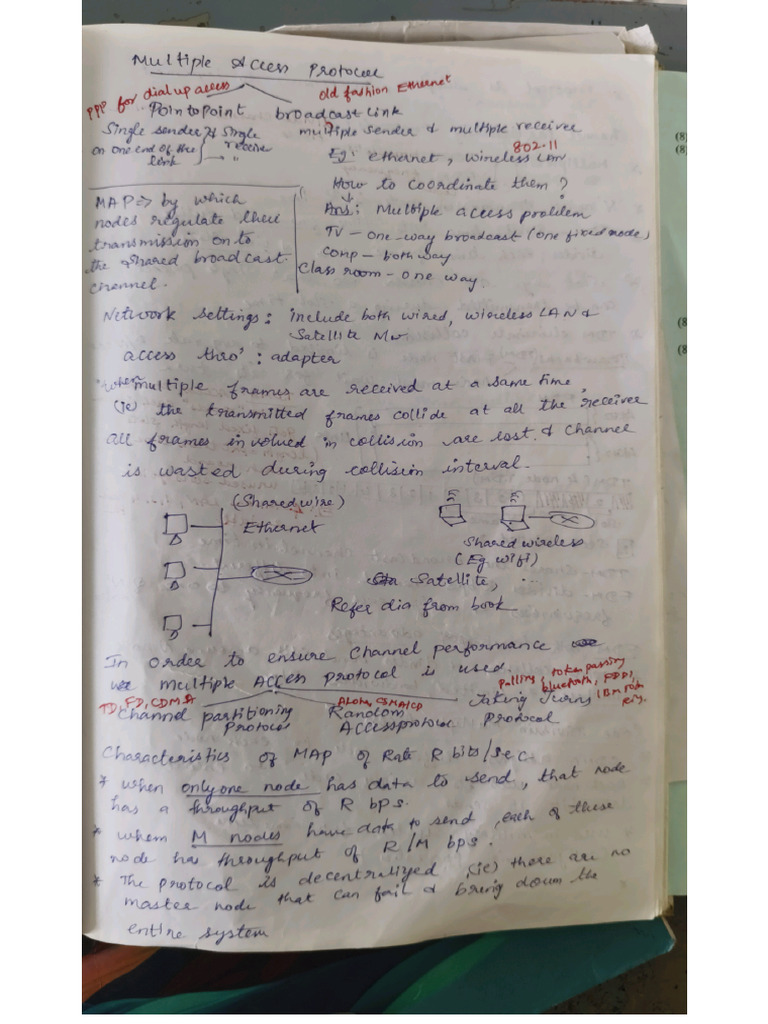 Multiple Access Protocol
PPP for dial up access
old fashion Ethernet
Point to point
broadcast link
Single sender & Single
on one end of the receive
link "
multiple sender & multiple receiver
802.11
Eg: ethernet, wireless LAN
How to coordinate them?
Ans: Multiple access problem
TV - one-way broadcast (one fixed node)
Comp - both way
Class room - one way
MAP => by which
nodes regulate their
transmission on to
the shared broadcast
channel.
Network settings: include both wired, wireless LAN &
Satellite Nw
access thro': adapter
when multiple frames are received at a same time,
(ie) the transmitted frames collide at all the receiver
all frames involved in collision are lost. & channel
is wasted during collision interval.
(Shared wire)
Ethernet
Shared wireless
(Eg wifi)
Satellite, ...
Refer dia from book
In order to ensure Channel performance
multiple Access protocol is used.
Polling, token passing
bluetooth, FDDI,
IBM token
ring.
TD, FD, CDMA
Aloha, CSMA/CD
Channel partitioning
Protocol
Random
Access protocol
Taking Turns
Protocol
Characteristics of MAP of Rate R bits/sec.
* when only one node has data to send, that node
has a throughput of R bps.
* when M nodes have data to send, each of these
node has throughput of R/M bps.
* The protocol is decentralized, (ie) there are no
master node that can fail & bring down the
entire system
(8)
(8)
(8
(8